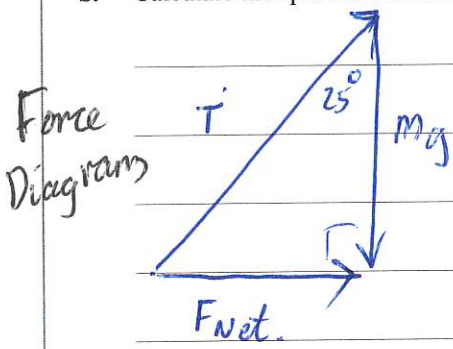 Force
Diagram
T
25°
mg
F Net.